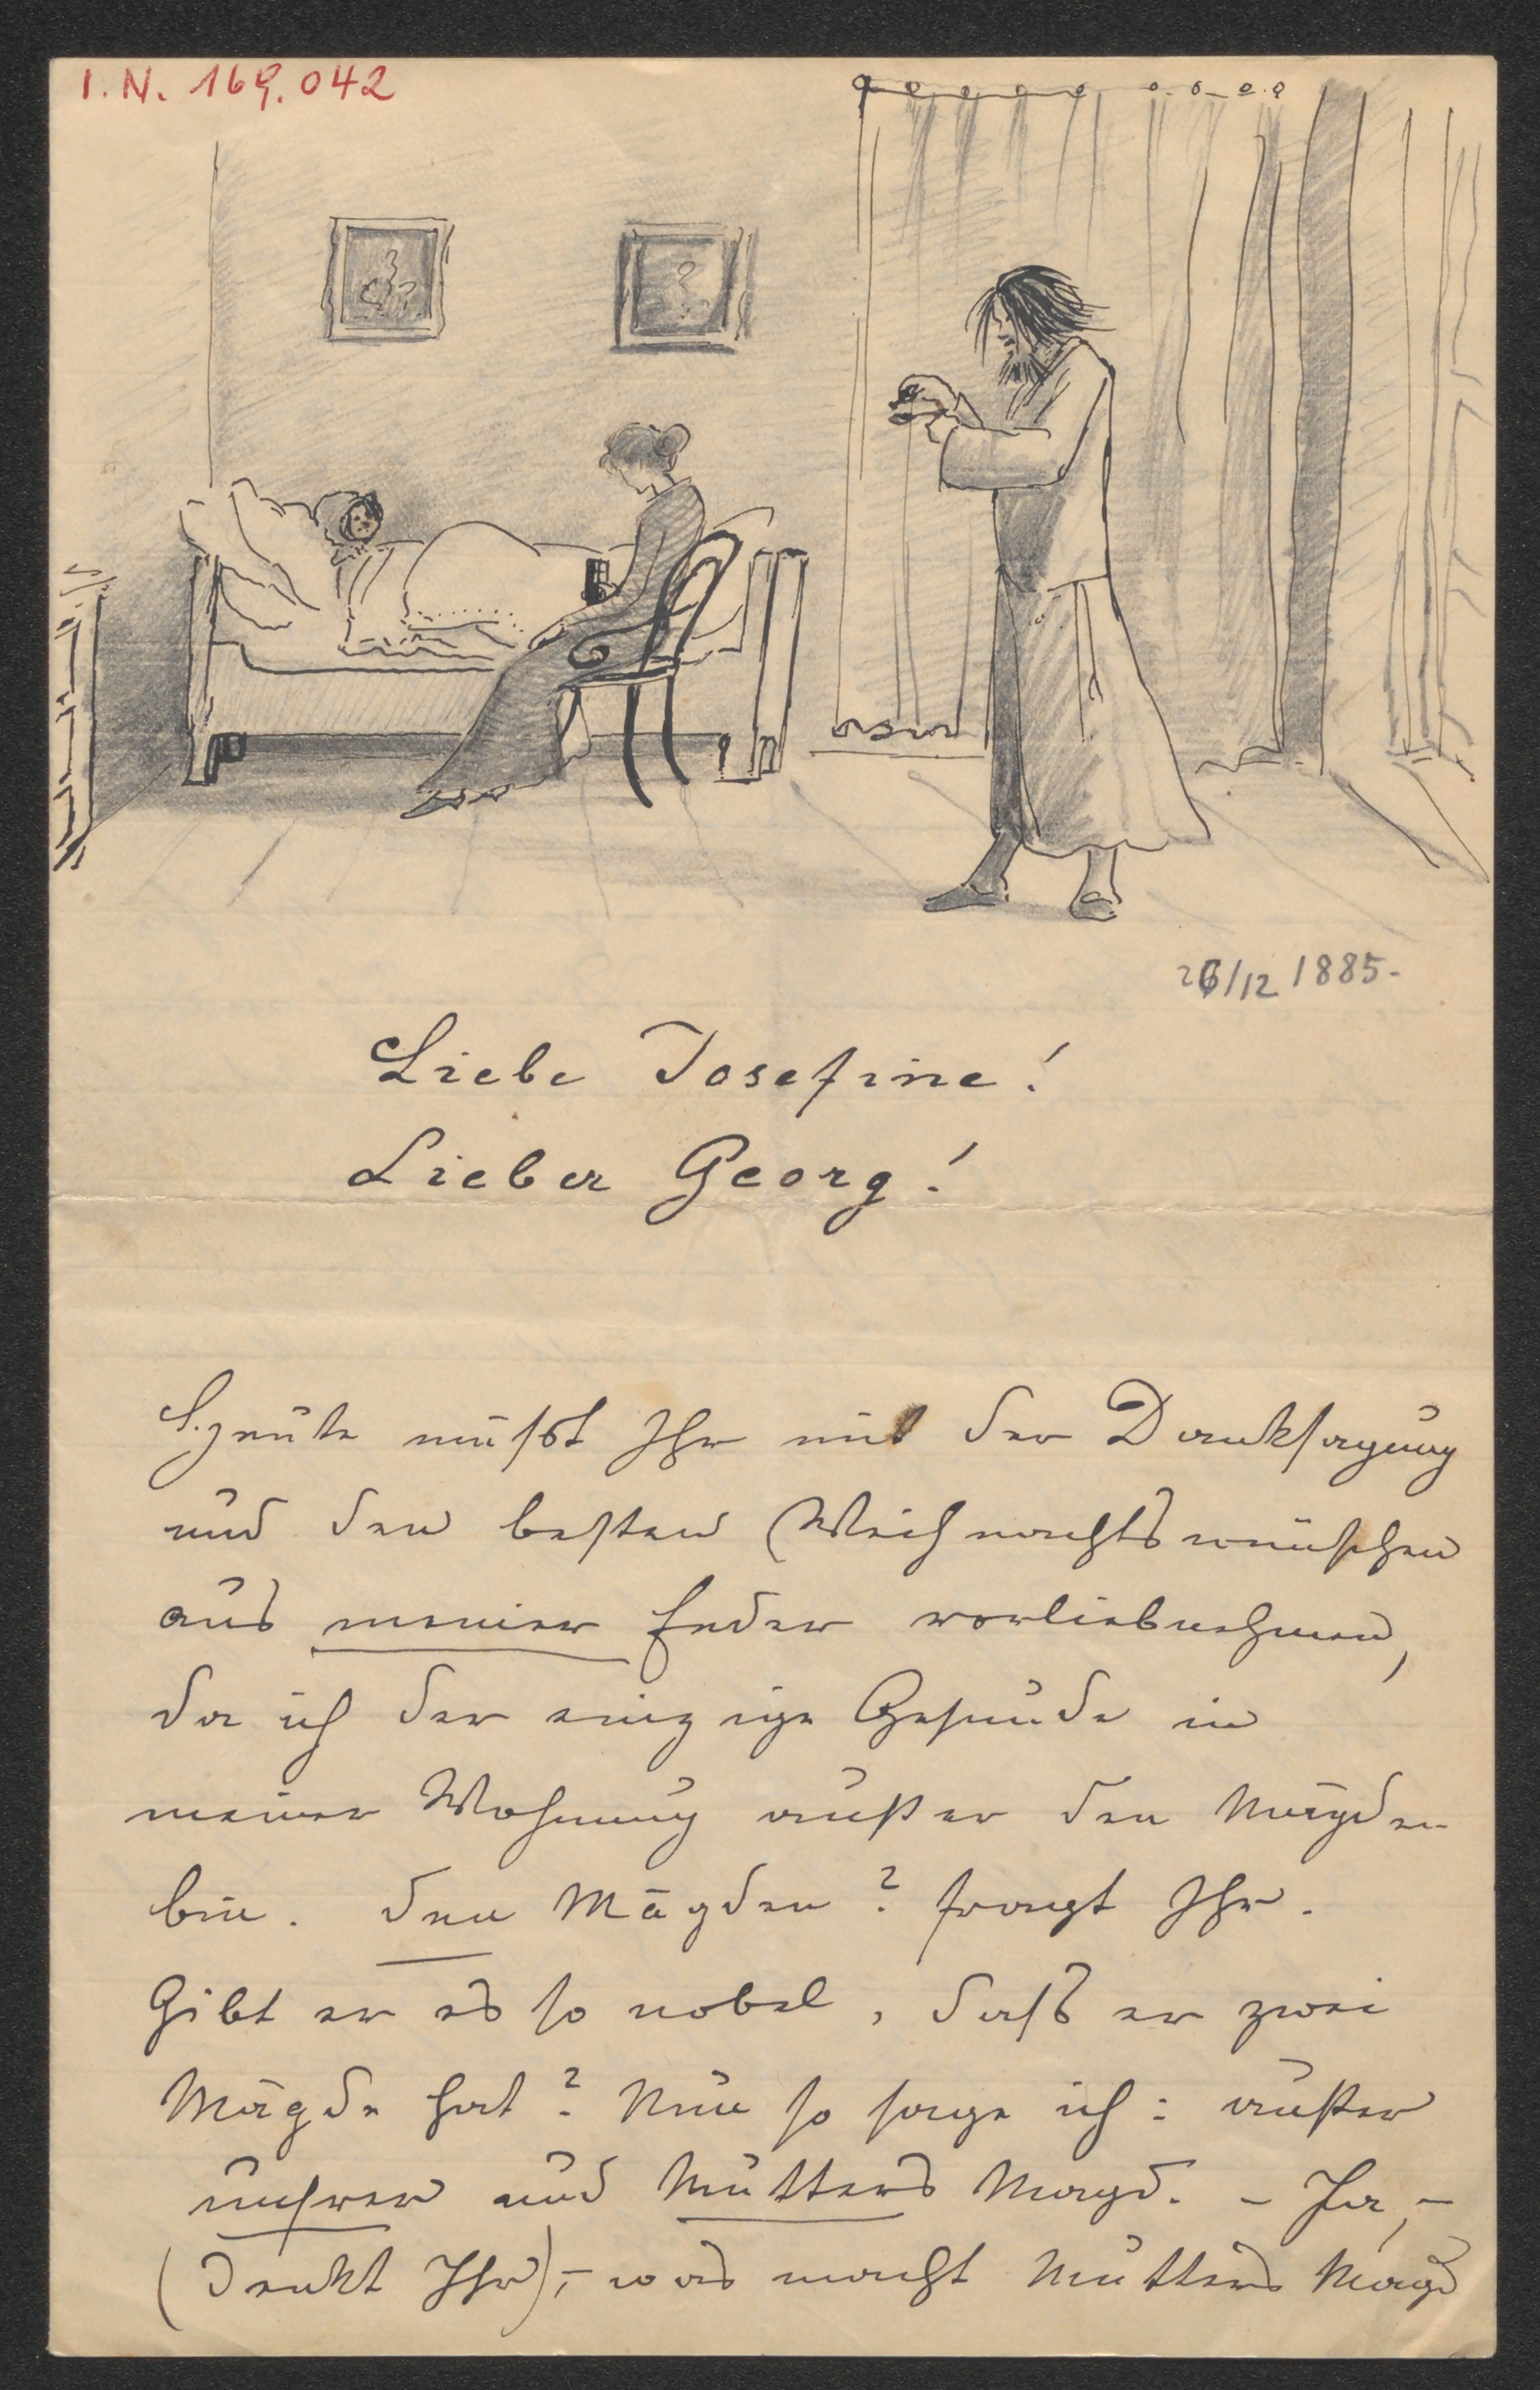 I. N. 169.042
26/12 1885-
Liebe Josefine!
Lieber Georg!
Heute müßt Ihr mit der Danksagung
und den besten Weihnachtswünschen
aus meiner Feder vorliebnehmen,
da ich der einzige Gesunde in
meiner Wohnung außer den Mägden
bin. Den Mägden? fragt Ihr.
Gibt er es so nobel, daß er zwei
Mägde hat? Nun so sage ich: außer
unsrer und Mutters Magd. – Ja, –
(denkt Ihr), – was macht Mutters Magd